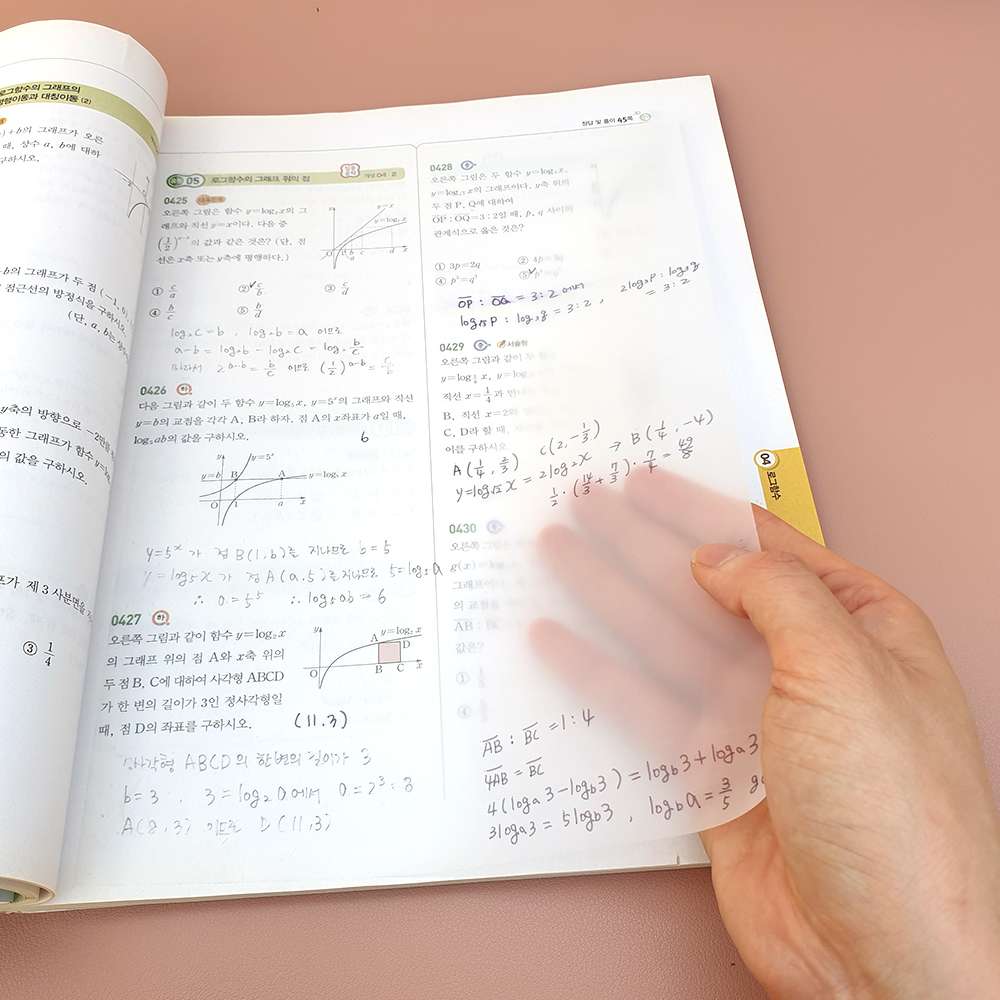 로그함수의 그래프의
평행이동과 대칭이동 (2)
)+b의 그래프가 오른
때, 상수 a, b에 대하
구하시오.
b의 그래프가 두 점 (-1, 0),
점근선의 방정식을 구하시오.
(단, a, b는
y축의 방향으로 -2만큼
동한 그래프가 함수 y=
의 값을 구하시오.
가 제3사분면을
③ 1/4
정답 및 풀이 45쪽
05 로그함수의 그래프 위의 점
개념 04 · 2
0425 대표문제
오른쪽 그림은 함수 y=log₂x의 그
래프와 직선 y=x이다. 다음 중
(1/2)^(a-b)의 값과 같은 것은? (단, 점
선은 x축 또는 y축에 평행하다.)
y=x
y=log₂x
O 1 b a c d x
① c/a ② c/b ③ c/d
④ b/c ⑤ b/d
log₂c=b, log₂b=a 이므로
a-b=log₂b-log₂c=log₂ b/c
따라서 2^(a-b)=b/c 이므로 (1/2)^(a-b)=c/b
0426 하
다음 그림과 같이 두 함수 y=log₅x, y=5ˣ의 그래프와 직선
y=b의 교점을 각각 A, B라 하자. 점 A의 x좌표가 a일 때,
log₅ab의 값을 구하시오.
6
y y=5ˣ
y=b B A y=log₅x
O 1 a x
y=5ˣ가 점 B(1,b)를 지나므로 b=5
y=log₅x가 점 A(a,5)를 지나므로 5=log₅a
∴ a=5⁵ ∴ log₅ab=6
0427 하
오른쪽 그림과 같이 함수 y=log₂x
의 그래프 위의 점 A와 x축 위의
두 점 B, C에 대하여 사각형 ABCD
가 한 변의 길이가 3인 정사각형일
때, 점 D의 좌표를 구하시오.
y A y=log₂x
D
O B C x
(11.3)
정사각형 ABCD의 한변의 길이가 3
b=3, 3=log₂a에서 a=2³=8
A(8,3) 이므로 D(11,3)
0428 중
오른쪽 그림은 두 함수 y=log₂x,
y=log√₂x의 그래프이다. y축 위의
두 점 P, Q에 대하여
OP : OQ=3 : 2일 때, p, q 사이의
관계식으로 옳은 것은?
① 3p=2q ② 4p=3q
④ p³=q² ⑤
OP : OQ = 3 : 2 에서
log√₂p : log₂q = 3 : 2, 2log₂p : log₂q
= 3 : 2
0429 중 서술형
오른쪽 그림과 같이 두
직선 x=1/4과 만나
B, 직선 x=2와
C, D라 할 때,
이를 구하시오.
A(1/4, 2/3) C(2, -1/3)
y=log√₂x=2log₂x → B(1/4, -4)
1/2·(14/3+7/3)·7/4=49/8
0430 중
g(x)=
그래프이다.
의 교점을
AB : BC
값은?
①
④
AB : BC = 1 : 4
4AB = BC
4(loga3-logb3)=logb3+loga3
3loga3=5logb3, logba=3/5
04 로그함수